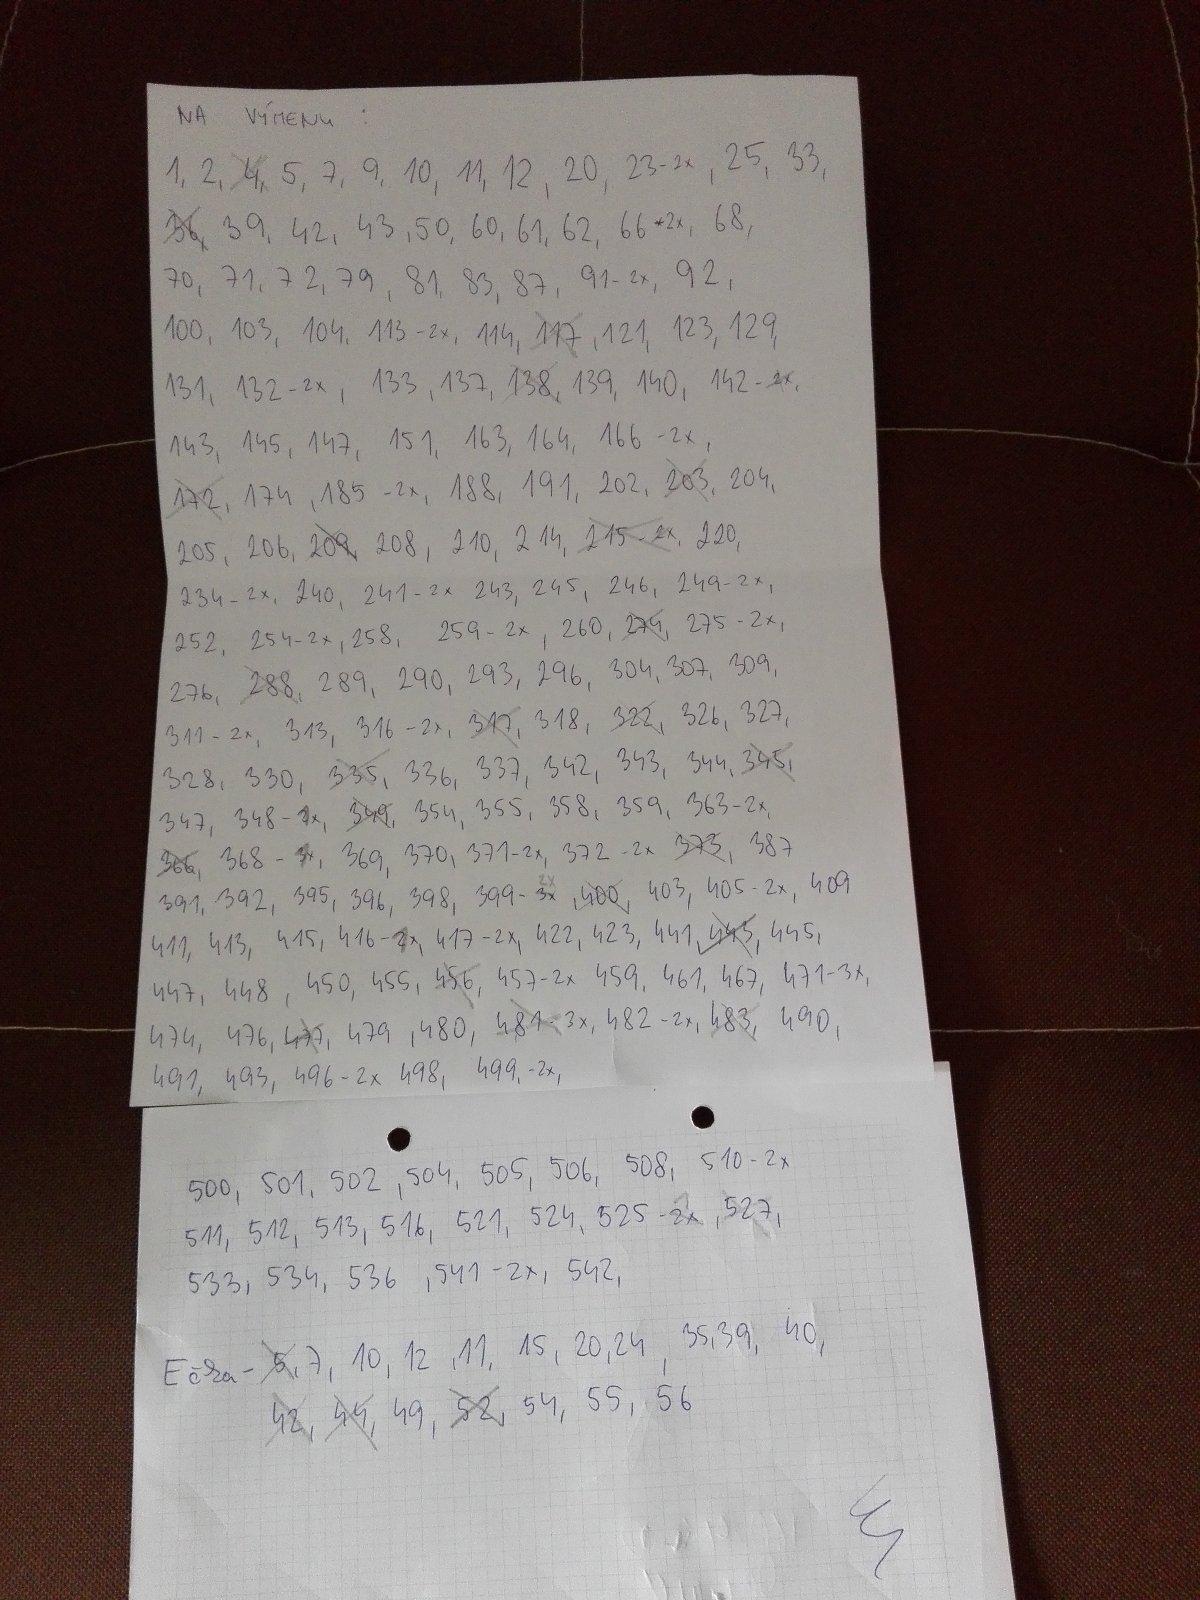 NA VÝMENU :
1, 2, 4, 5, 7, 9, 10, 11, 12, 20, 23-2x, 25, 33,
36, 39, 42, 43, 50, 60, 61, 62, 66-2x, 68,
70, 71, 72, 79, 81, 83, 87, 91-2x, 92,
100, 103, 104, 113-2x, 114, 117, 121, 123, 129,
131, 132-2x, 133, 137, 138, 139, 140, 142-2x,
143, 145, 147, 151, 163, 164, 166-2x,
172, 174, 185-2x, 188, 191, 202, 203, 204,
205, 206, 209, 208, 210, 214, 215-2x, 220,
234-2x, 240, 241-2x 243, 245, 246, 249-2x,
252, 254-2x, 258, 259-2x, 260, 274, 275-2x,
276, 288, 289, 290, 293, 296, 304, 307, 309,
311-2x, 313, 316-2x, 317, 318, 322, 326, 327,
328, 330, 335, 336, 337, 342, 343, 344, 345,
347, 348- x, 349, 354, 355, 358, 359, 363-2x,
366, 368- x, 369, 370, 371-2x, 372-2x 373, 387
391, 392, 395, 396, 398, 399-3x 2x, 400, 403, 405-2x, 409
411, 413, 415, 416- x, 417-2x, 422, 423, 441, 443, 445,
447, 448, 450, 455, 456, 457-2x 459, 461, 467, 471-3x,
474, 476, 477, 479, 480, 481-3x, 482-2x, 483, 490,
491, 493, 496-2x 498, 499,-2x,
500, 501, 502, 504, 505, 506, 508, 510-2x
511, 512, 513, 516, 521, 524, 525-2x, 527,
533, 534, 536, 541-2x, 542,
Ečka- 5, 7, 10, 12, 11, 15, 20, 24, 35, 39, 40,
42, 44, 49, 52, 54, 55, 56